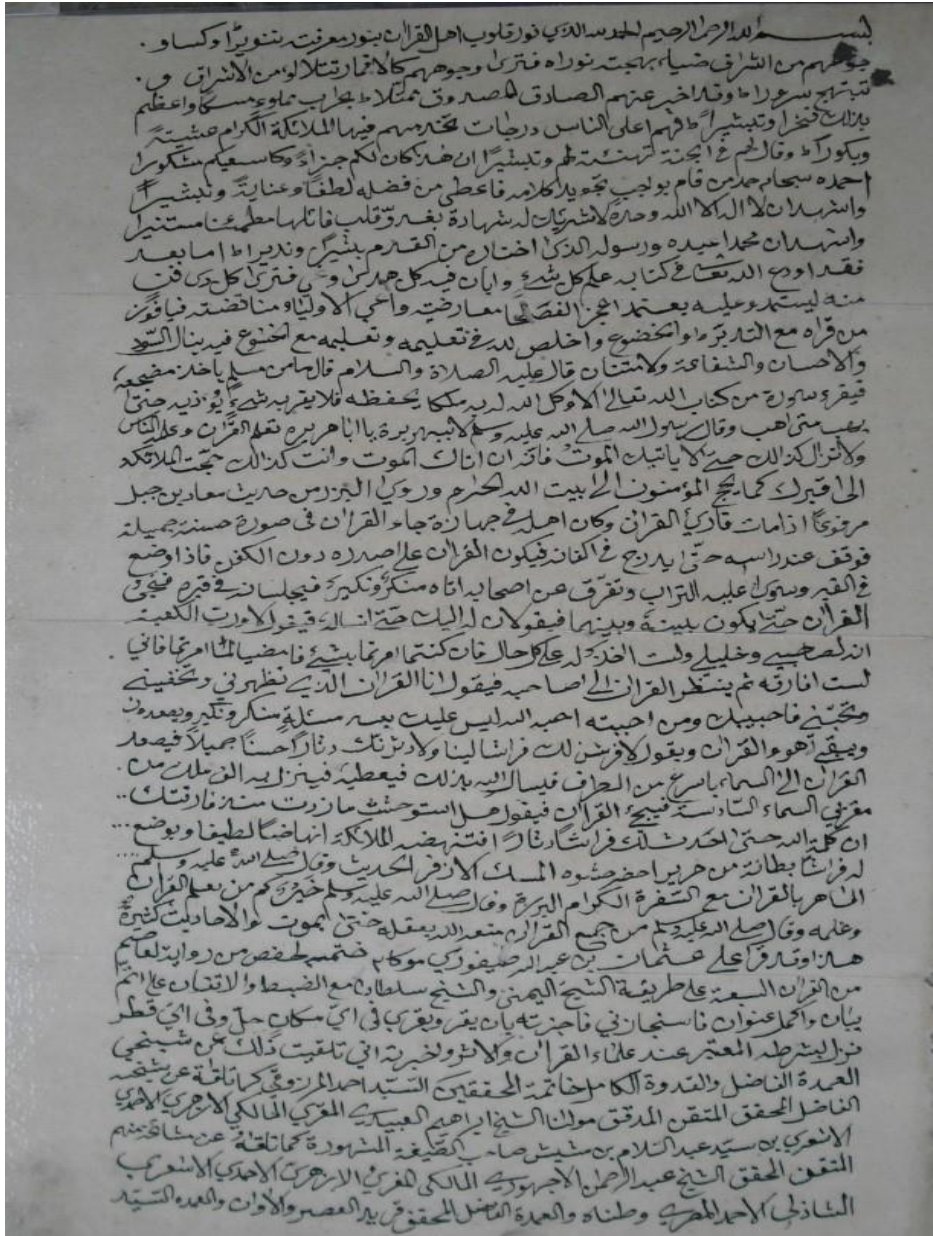 بسم الله الرحمن الرحيم الحمد لله الذي نور قلوب اهل القران بنور معرفته تنويرا وكساو
جوههم من اشراق ضياء بهجته نوراه فترى وجوههم كالاقمار تتلالؤ من الاشراق و
تبتهج سروراط وقد اخبر عنهم الصادق المصدوق بجراب مملوء مسكا واعظم
بذلك فخرا وتبشيراط فهم اعلى الناس درجات تخدمهم فيها الملائكة الكرام عشية
وبكوراط وقال لهم في الجنة تهنئة لهم وتبشيرا ان هذا كان لكم جزاء وكا سعيكم مشكورا
احمده سبحانه حمد من قام بواجب تجويد كلامه فاعطى من فضله لطفا وعناية وتبشيرا
واشهد ان لا اله الا الله وحده لا شريك له شهادة قلب قاتلها مطمئنا مستنيرا
واشهد ان محمدا عبده ورسوله الذى اختاره من القدم بشيرا ونذيراط اما بعد
فقد اودع الله تعا في كتابه علم كل شيء وابان فيه كل هدى وغي فترى كل ذى فن
منه ليستمد وعليه يعتمد اعجز الفصحا معارضته واعي الاولياء مناقضته فيا فوز
من قراه مع التدبر واالخضوع واخلص لله في تعليمه وتعلمه مع الخشوع فيه ينال السود
والاحسان والشفاعة ولامتنان قال عليه الصلاة والسلام قال ما من مسلم ياخذ مضجعه
فيقرء سورة من كتاب الله تعالى الا وكل الله له به ملكا يحفظه فلا يقربه شيء يؤذيه حتى
يهب متى اهب وقال رسول الله صلى الله عليه وسلم لابي هريرة يا ابا هريره تعلم القرآن وعلمه الناس
ولا تزال كذالك حتى لا ياتيك الموت فانه ان اتاك الموت وانت كذالك حجت الملائكة
الى اقبرك كما يحج المؤمنون الى ابيت الله الحرام وروى البزر من حديث معاد بن جبل
مرفوعا اذا مات قارئ القران وكان اهله في جهازه جاء القران في صورة حسنة جميلة
فوقف عند راسه حتى يدرج في اكفانه فيكون القران على صدره دون الكفن فاذا وضع
في القبر وسوى عليه التراب وتفرق عن اصحابه اتاه منكر ونكير فيجلسانه في قبره فيجئ
القران حتى يكون بينه وبينهما فيقولان له اليك حتى نساله فيقول لا ورب الكعبة
انه لصاحبي وخليلي ولست اخذله على كل حال فان كنتما امرتما بشيء فامضيا لما امرتما فاني
لست افارقه ثم ينظر القران الى اصاحبه فيقول انا القران الذى تظهرني وتخفيني
وتحبني فاحبيبك ومن احببته احبه الله ليس عليك بعد مسئلة منكر ونكير ويصعدون
ويبقى هو والقران ويقول لافرشن لك فراشا لينا ولادثرنك دثارا حسنا جميلا فيصعد
القران الى السماء باسرع من الطرف فيسال الله بذلك فيعطيه فينزل به الف ملك من
مقربي السماء السادسة فيجيء القران فيقول هل استوحشت ما زدت منذ فارقتك
ان كلمة الله حتى اخذت لك فراشا ودثارا فتنهضه الملائكة انهاضا لطيفا ويوضع
له فراشا بطانة من حرير اخضر حشوه المسك الازفر الحديث وقال صلى الله عليه وسلم
الماهر بالقران مع السفرة الكرام البررة وقال صلى الله عليه وسلم خيركم من تعلم القران
وعلمه وقال صلى الله عليه وسلم من جمع القران متعه الله بعقله حتى يموت والاحاديث كثيرة
هذا وقد قرا على عثمان بن عبد الله ختمة لحفص من رواية لعاصم
من القران السبعة على طريقة الشيخ اليمني والشيخ سلطان مع الضبط والاتقان على اتم
بيان واكمل عنوان فاستجازني فاجزته بان يقر ويقرى في اي مكان حل وفى اى قطر
نزل بشرطه المعتبر عند علماء القران والاثر واخبرته اني تلقيت ذلك عن شيخي
العمدة الفاضل والقدوة الكامل خاتمة المحققين السيد احمد المرزوقي كما تلقه عن شيخه
الفاضل المحقق المتقن المدقق مولنا الشيخ ابراهيم العبيدى المقري المالكي الازهري الاحمدي
الاشعري بن سيد عبد السلام بن مشيش صاحب المشهورة كما تلقه عن مشائخ منهم
المتقن المحقق الشيخ عبد الرحمن الاجهوري المالكي المقري الازهرى الاحمدي الاشعري
الشاذلى الاحمد المصرى وطناه والعمدة الفاضل المحقق فريد العصر والاوان والعمده السيد